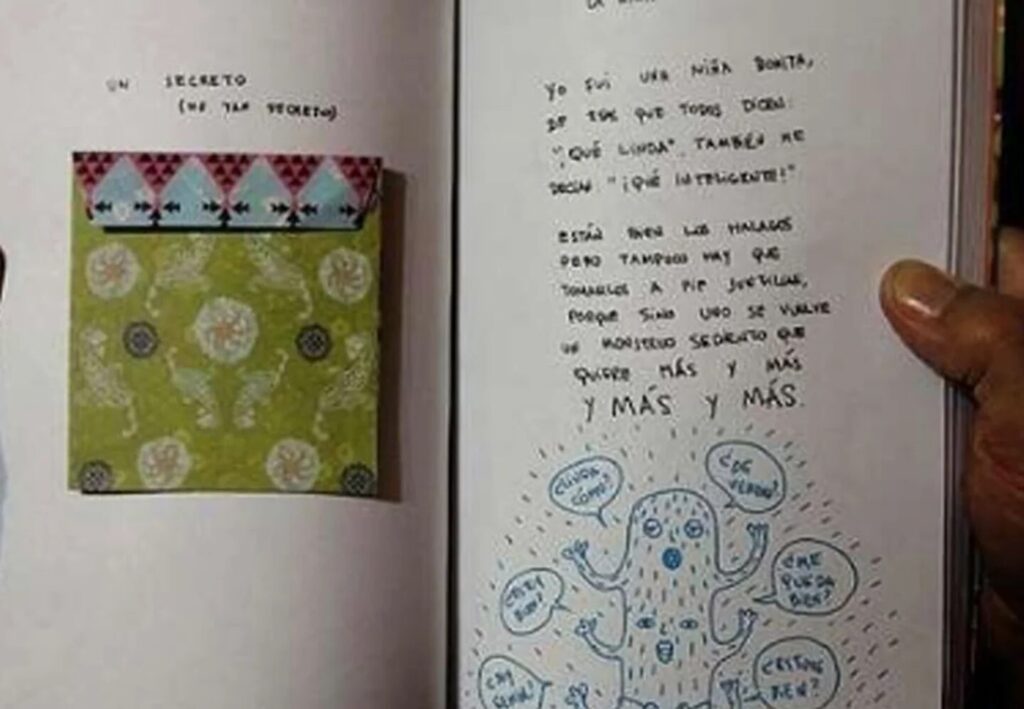 UN SECRETO
(NO TAN SECRETO)
YO FUI UNA NIÑA BONITA,
DE ESAS QUE TODOS DICEN:
"¡QUÉ LINDA". TAMBIÉN ME
DECÍAN "¡QUÉ INTELIGENTE!"
ESTÁN BIEN LOS HALAGOS
PERO TAMPOCO HAY QUE
TOMARLOS A PIE JUNTILLAS,
PORQUE SINO UNO SE VUELVE
UN MONSTRUO SEDIENTO QUE
QUIERE MÁS Y MÁS
Y MÁS Y MÁS.
¿LINDA
CÓMO?
¿DE
VERDAD?
¿ME
QUEDA
BIEN?
¿ESTUVE
BIEN?